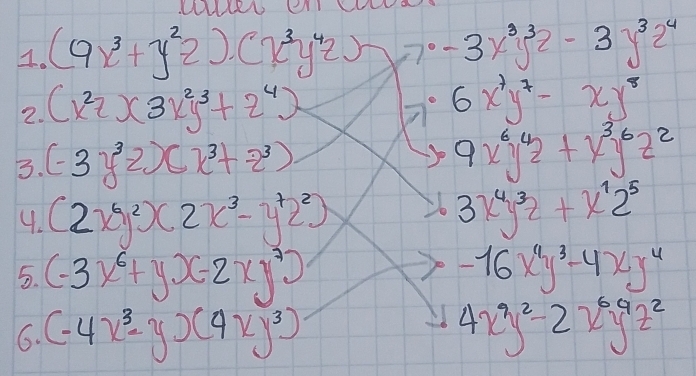 1. (9x³ + y²z) · (x³y⁴z)
2. (x²z)(3x²y³ + z⁴)
3. (-3y³z)(x³ + z³)
4. (2x⁶y²)(2x³ - y⁷z²)
5. (-3x⁶ + y)(-2xy⁷)
6. (-4x³ - y)(4xy³)
· -3x³y³z - 3y³z⁴
· 6x⁷y⁷ - xy⁸
9x⁶y⁴z + x³y⁶z²
3x⁴y³z + x²z⁵
-16x⁴y³ - 4xy⁴
4x⁹y² - 2x⁶y⁹z²